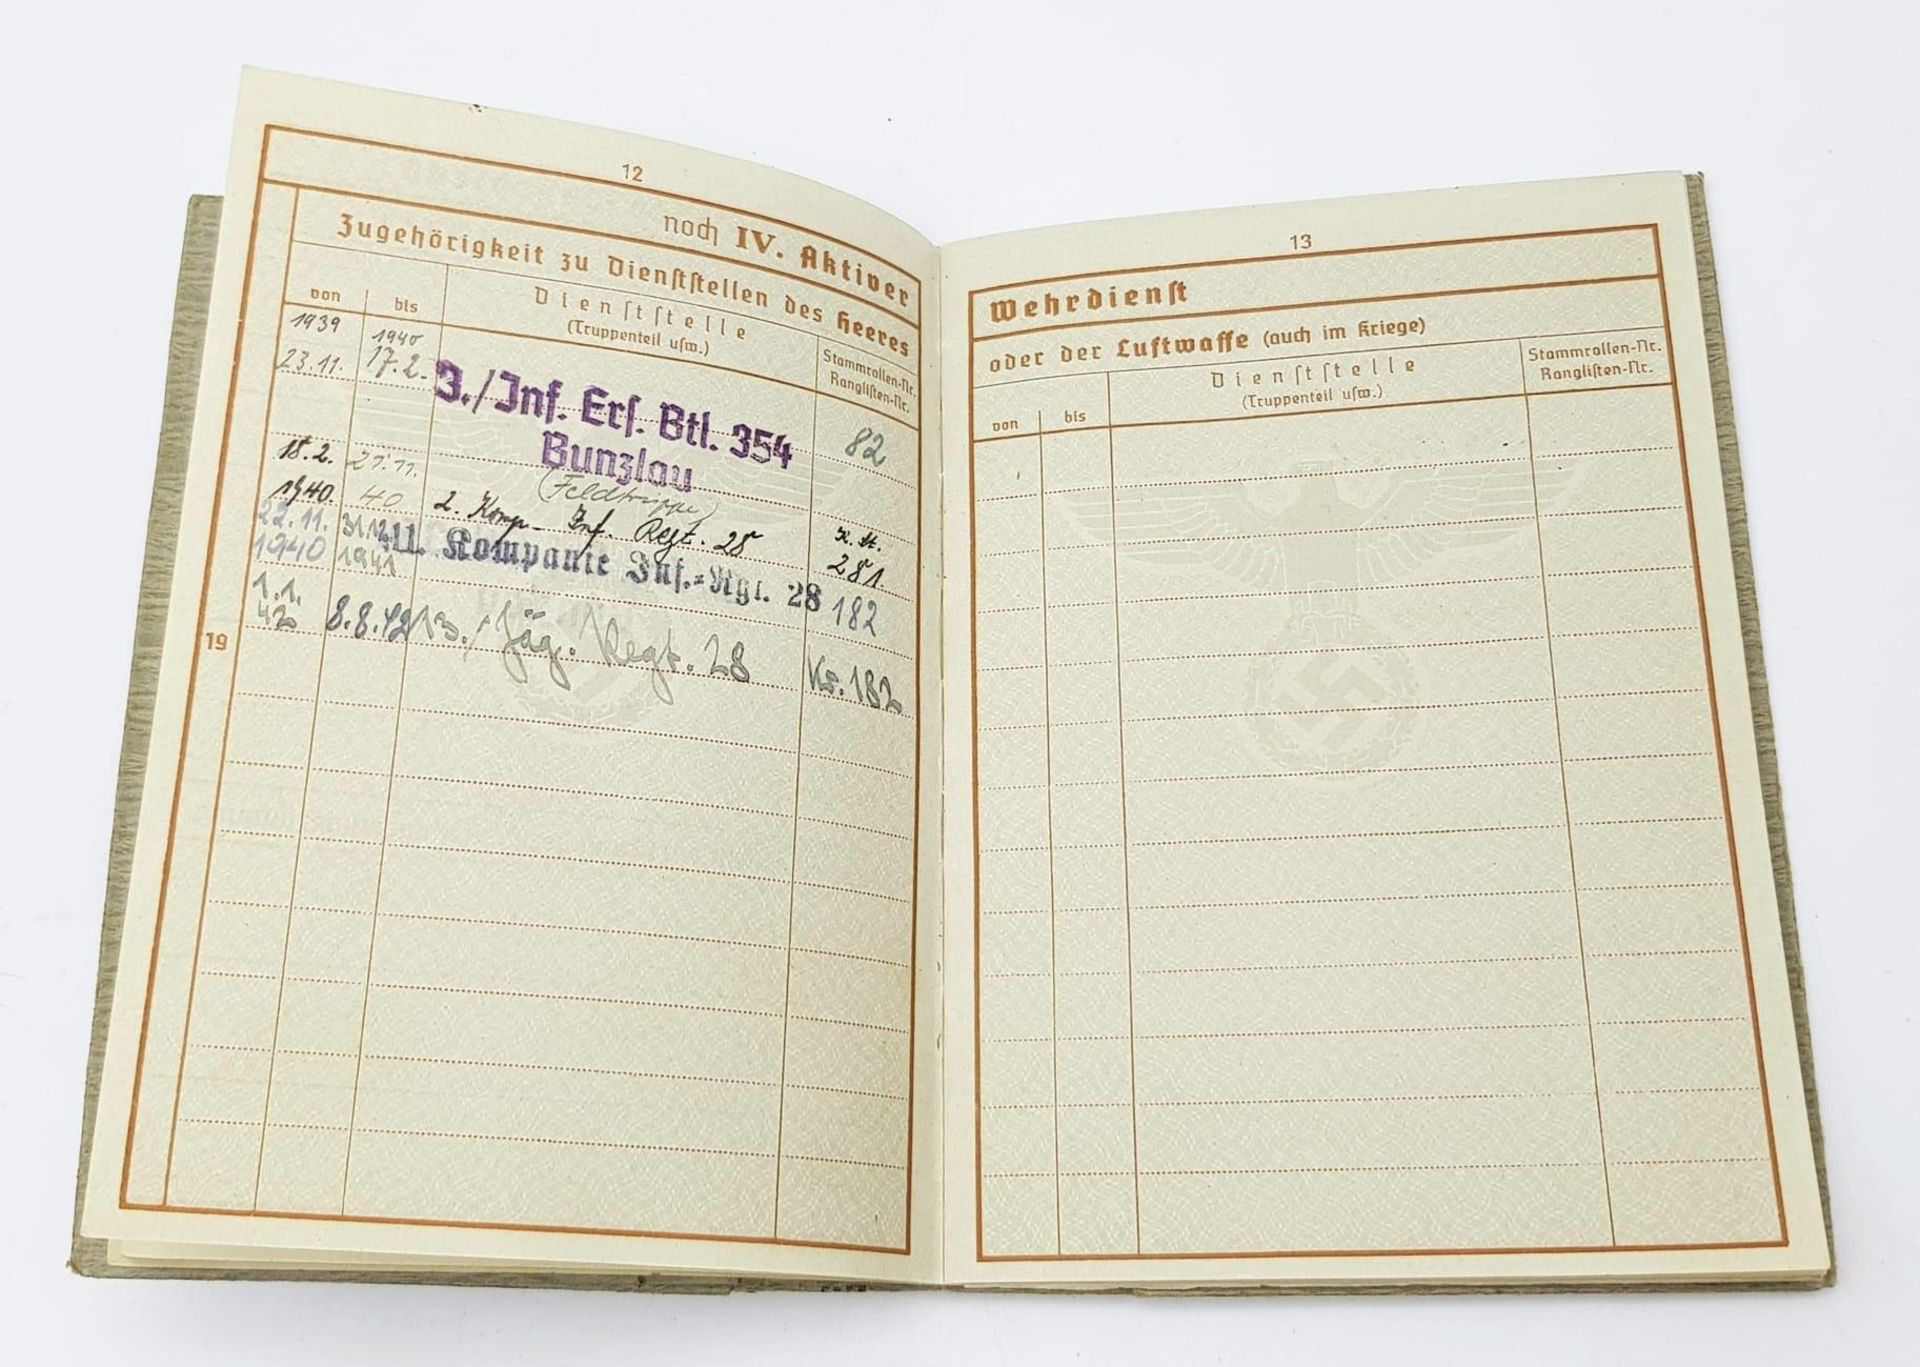 12
noch IV. Aktiver
Zugehörigkeit zu Dienststellen des Heeres
von
bis
Dienststelle
(Truppenteil usw.)
Stammrollen-Nr.
Ranglisten-Nr.
1939
23.11.
1940
17.2.
3./Inf. Ers. Btl. 354
Bunzlau
82
18.2.
1940
21.11.
40
(Feldtruppe)
2. Komp. Inf. Regt. 28
281.
22.11.
1940
31.12.
1941
11. Kompanie Inf.=Rgt. 28
182
1.1.
42
8.8.42
13./Jäg. Regt. 28
Kr. 182
19
13
Wehrdienst
oder der Luftwaffe (auch im Kriege)
von
bis
Dienststelle
(Truppenteil usw.)
Stammrollen-Nr.
Ranglisten-Nr.